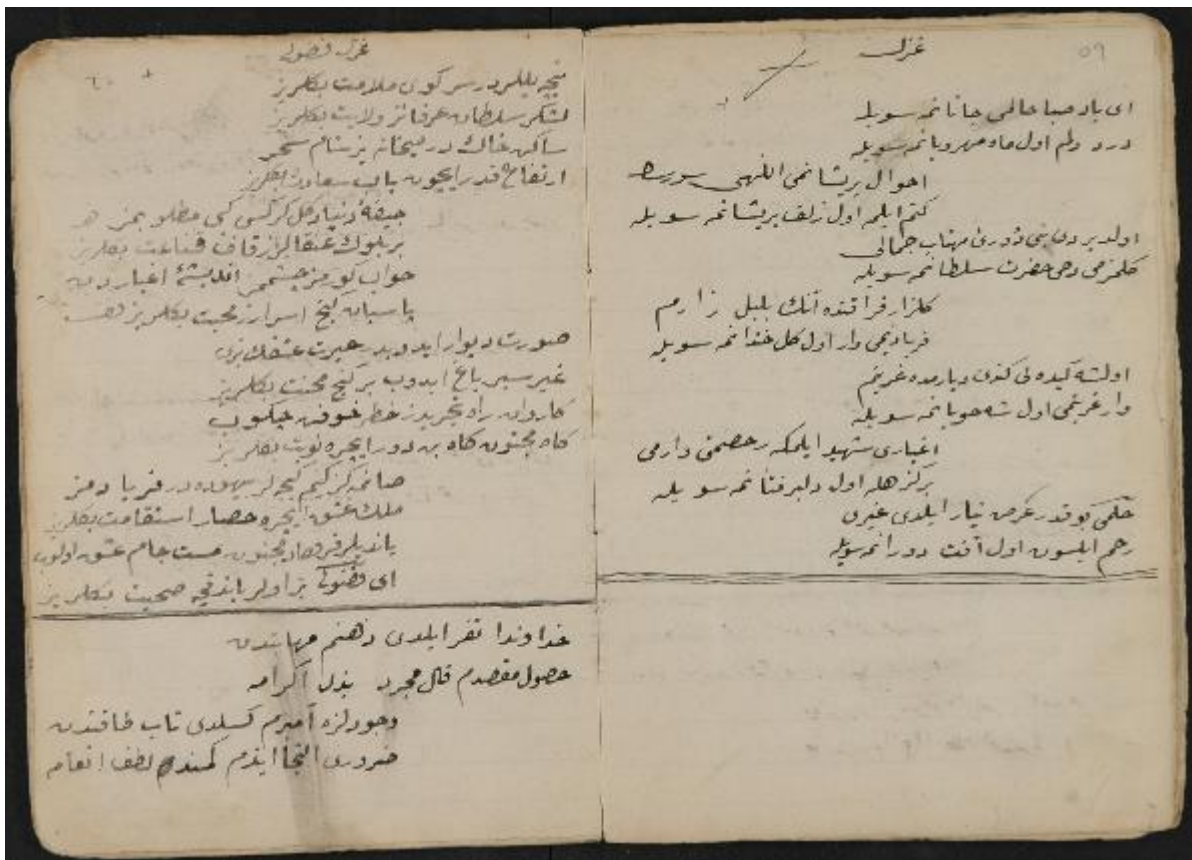 ٥٩
غزل
ای باد صبا حالمی جانانمه سویله
درد دلم اول ماه مهروبانمه سویله
احوال پریشانمی اللهی سورسه
کتم ایلمه اول زلف پریشانمه سویله
اولدیردی بنی دوری مهتاب جمالی
کلمزمی دخی حضرت سلطانمه سویله
کلزار فراقنده آنک بلبل زارم
فریادیمی وار اول کل خندانمه سویله
اولشه کیده لی کندی دیارمده غریبم
وار غریبمی اول شه خوبانمه سویله
اغیاری شهید ایلمکه رخصتمی وارمی
برکز هله اول دلبر فتانمه سویله
حکمی بوقدر عرض نیاز ایلدی غیری
رحم ایلسون اول آفت دورانمه سویله
٦٠
غزل فضولی
نیجه ییللردر سر کوی ملامت بکلریز
لشکر سلطان عرفانز ولایت بکلریز
ساکن خاک در میخانه یز شام سحر
ارتفاع قدر ایچون باب سعادت بکلریز
جیفهٔ دنیا دکل کرکس کبی مطلوبمز
بر بلوک عنقالرز قاف قناعت بکلریز
خواب کورمز چشممز اندیشهٔ اغیاردن
پاسبان کنج اسرارز محبت بکلریز
صورت دیوار ایدوبدر حیرت عشقک بزی
غیر سیر باغ ایدوب بز کنج محنت بکلریز
کاروان راه تجریدز خطر خوفن چکوب
کاه مجنون کاه بن دور ایچره نوبت بکلریز
صانمه کز کیم کیجه لر بیهوده در فریادمز
ملک عشق ایچره حصار استقامت بکلریز
یاتدیلر فرهاد مجنون مست جام عشق اولوب
ای فضولی بز اولر یاتدقچه صحبت بکلریز
خداوندا نفر ایلدی ذهنم مهابتدن
حصول مقصدم قال مجرد بذل اکرامه
وجود لرزه آمیزم کسلدی تاب طاقتدن
ضروری التجا ایتدم کمند لطف انعامه